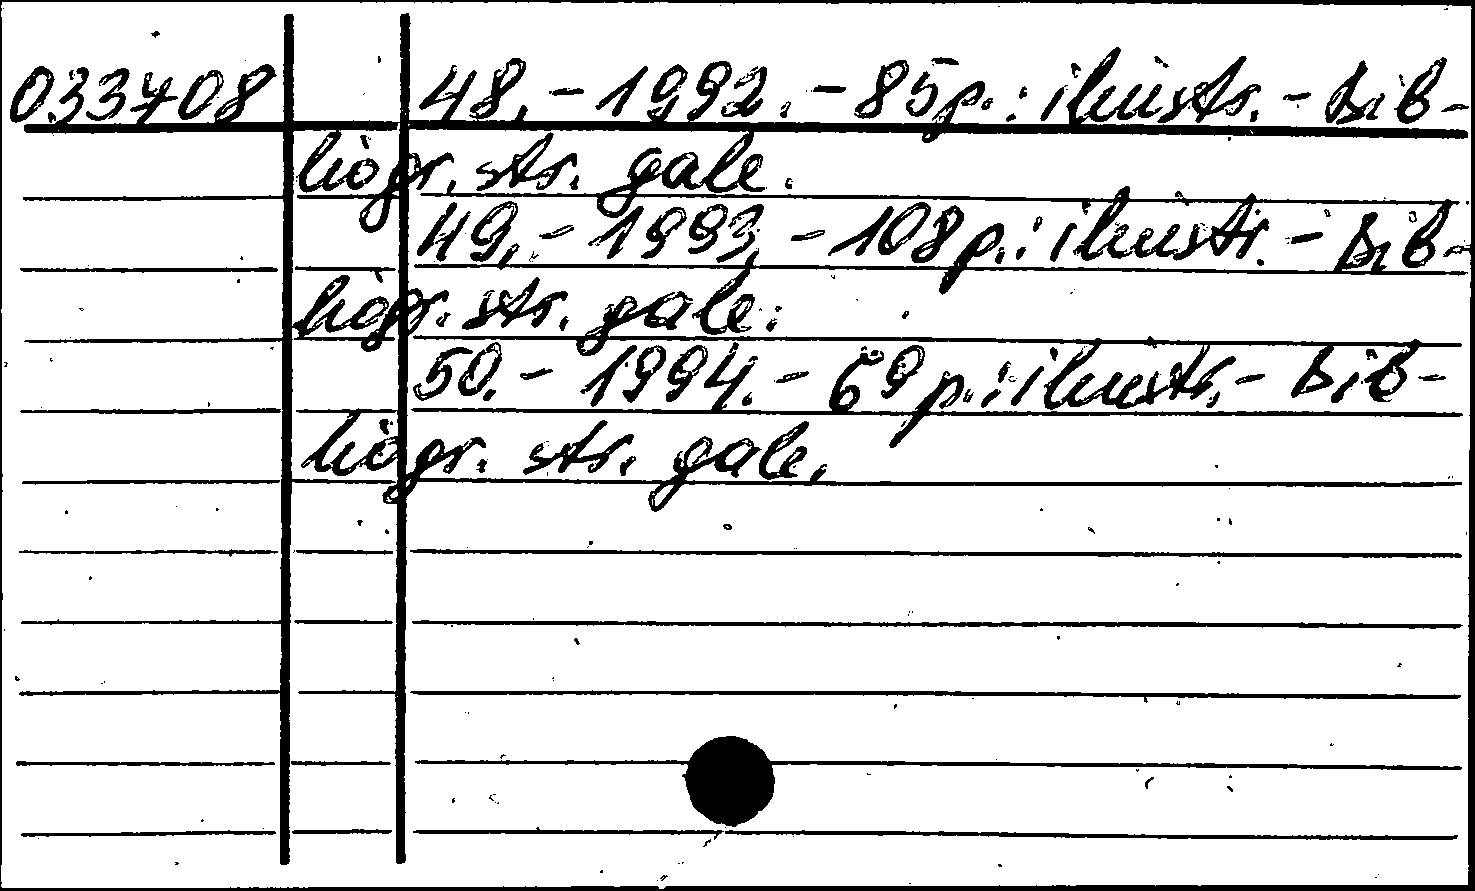 033708 48. - 1992. - 85 p.: iliustr. - Bib-
liogr. str. gale.
49. - 1993. - 108 p.: iliustr. - Bib-
liogr. str. gale.
50. - 1994. - 69 p.: iliustr. - Bib-
liogr. str. gale.